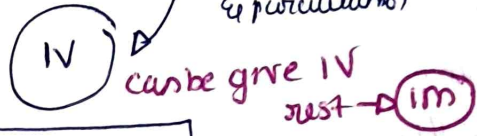 IV
can be give IV
rest → im